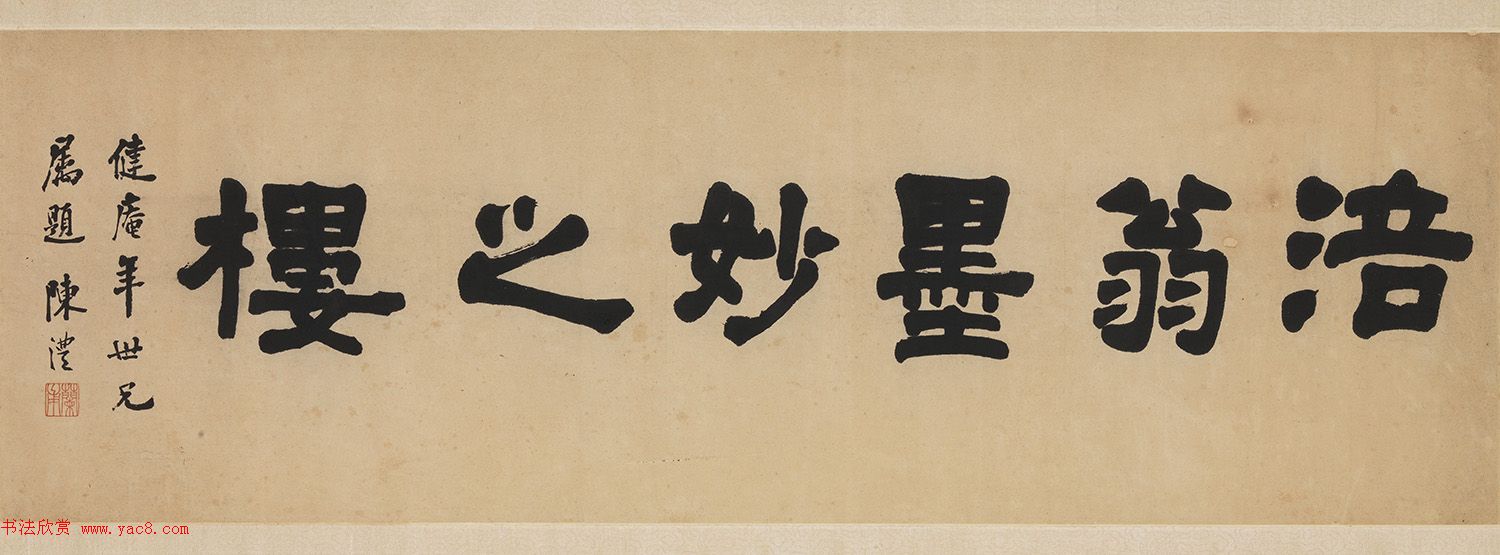 涪翁墨妙之樓
健庵年世兄
屬題 陳澧
蘭甫
书法欣赏 www.yac8.com